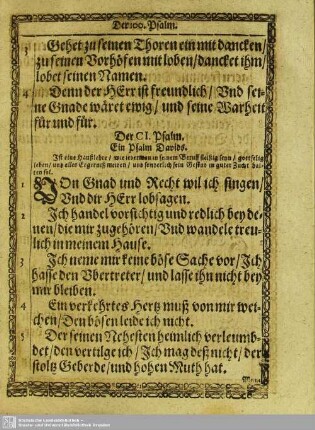 Der 100. Psalm.
3 Gehet zu seinen Thoren ein mit dancken/
zu seinen Vorhöfen mit loben/dancket ihm/
lobet seinen Namen.
4 Denn der HErr ist freundlich/ Vnd sei-
ne Gnade wäret ewig/ und seine Warheit
für und für.
Der CI. Psalm.
Ein Psalm Davids.
Ist eine Haußlehre/ wie iederman in seinem Beruff fleissig seyn/ gottselig
leben/ und alles Ergerniß meiden/ und sonderlich sein Gesind in guter Zucht hal-
ten sol.
1 VOn Gnad und Recht wil ich singen/
Vnd dir HErr lobsagen.
2 Ich handel vorsichtig und redlich bey de-
nen/die mir zugehören/ Vnd wandele treu-
lich in meinem Hause.
3 Ich neme mir keine böse Sache vor/Ich
hasse den Vbertreter/ und lasse ihn nicht bey
mir bleiben.
4 Ein verkehrtes Hertz muß von mir wei-
chen/Den bösen leide ich nicht.
5 Der seinen Nehesten heimlich verleumb-
det/den vertilge ich/ Ich mag deß nicht/ der
stoltz Geberde/ und hohen Muth hat.